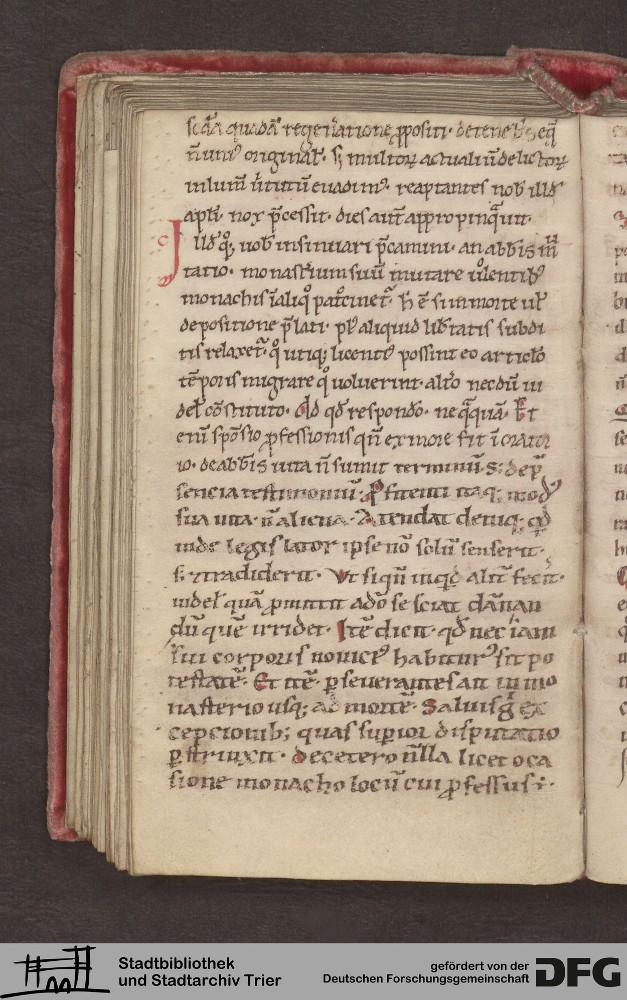 scd'a quadā regen̄atione p̱positi· de teneb̄s eq̄
n̄ unī originaƚ· s; multoꝝ actualiū delictoꝝ
in lum̄ v̄tutū euadim᷒· reaptantes nob̄ illđ
apłi· nox p̄cessit· dies aut̄ appropinq̄uit·
Illđ qͦq; uob̄ insinuari p̄camini· an abb̄is
tatio· monast̄ium suū mutare uͦlentib᷒
monachis ī aliqͦ pat͛cinet᷑· h̄ ē si in morte uł
depositione p̄lati· pł aliquid lib̄tatis subdi
tis relaxet᷑· qͦ utiq; licent᷒ possint eo articƚo
tēporis migrare qͦ uoluerint· alt͛o necdū ui
deƚ cōstituto· Ad qđ respondo· neq̄quā· Et
enī spōsio ꝓfessionis
io· de abb̄is uita n̄ sumit terminū s; de p̄
sencia testimoniū; Ꝓfitenti itaq; mod᷒
sua uita· n̄ aliena· Atendat deniq; qđ
inde legis lator ipse nō solū senserit·
s; ⁊ tradiderit· Vt siqn̄ inqͥđ alit̄ fecit·
uideƚ quā ꝓmittit ad̄o se sciat dānan
dū quē irridet· Itē dicit· qđ nec iam
sui corporis nouic᷒ habitur᷒ sit po
testatē· Et itē· ꝑseuerantes aīt in mo
nasterio usq; ad mortē· Saluis g͛ ex
cepcionib; quas superior disputatio
ꝑstrinxit· de cetero nulla licet oca
sione monacho locū cui ꝓfessus ÷·
Stadtbibliothek
und Stadtarchiv Trier
gefördert von der
Deutschen Forschungsgemeinschaft
DFG